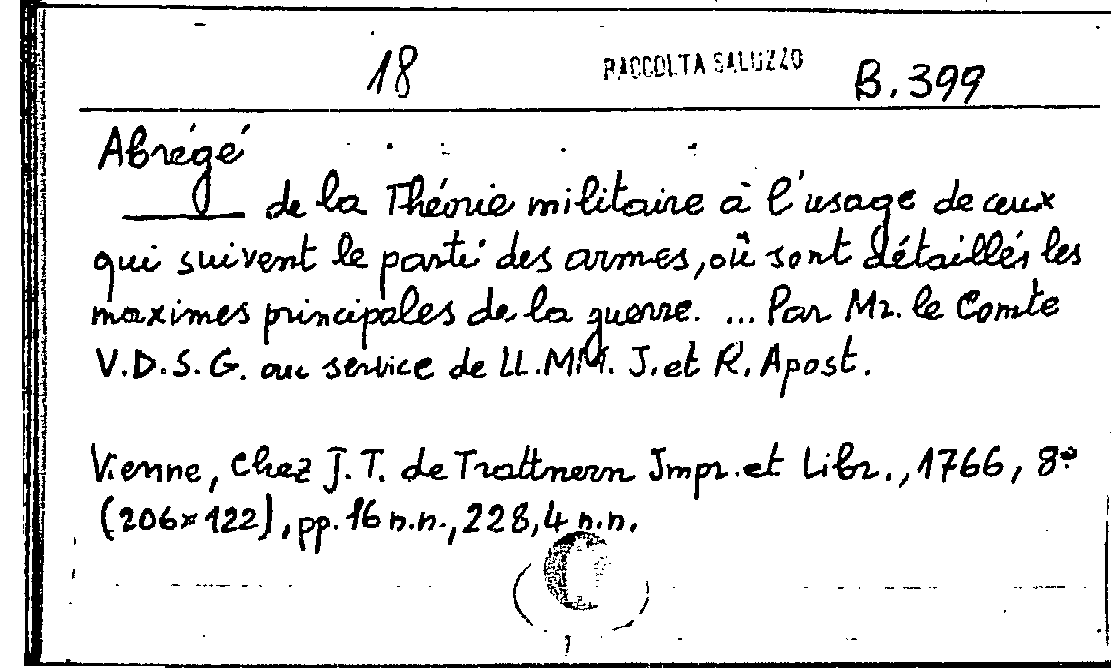 18 RACCOLTA SALUZZO B.399
Abrégé
de la Théorie militaire à l'usage de ceux
qui suivent le parti des armes, où sont détaillés les
maximes principales de la guerre. ... Par Mr. le Comte
V.D.S.G. au service de LL.MM. J. et R. Apost.
Vienne, Chez J.T. de Trattnern Impr. et Libr., 1766, 8º
(206×122), pp. 16 n.n., 228, 4 n.n.